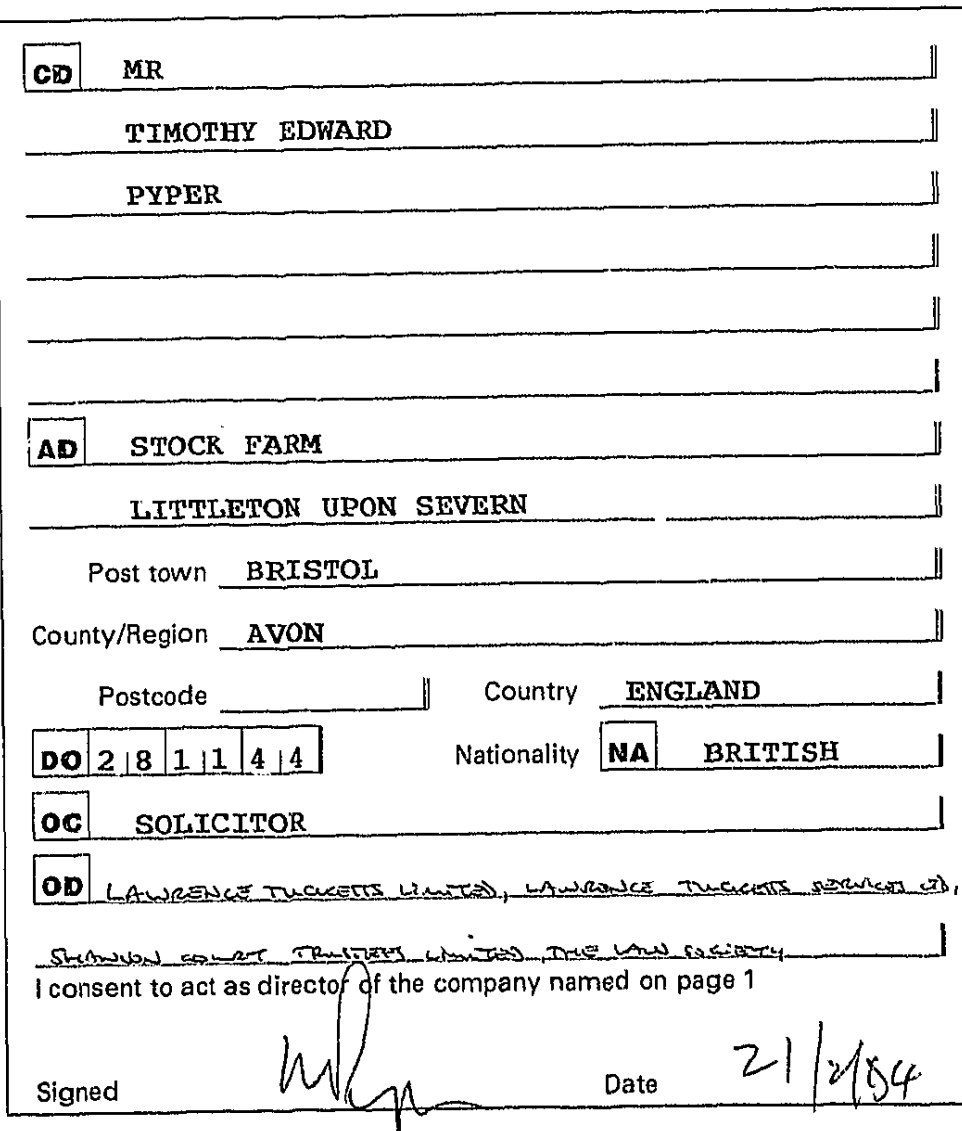 CD MR
TIMOTHY EDWARD
PYPER
AD STOCK FARM
LITTLETON UPON SEVERN
Post town BRISTOL
County/Region AVON
Postcode Country ENGLAND
DO 2 8 1 1 4 4 Nationality NA BRITISH
OC SOLICITOR
OD LAWRENCE TUCKETTS LIMITED, LAWRENCE TUCKETTS SERVICES LTD,
SHANNON COURT TRUSTEES LIMITED, THE LAW SOCIETY
I consent to act as director of the company named on page 1
Signed Date 21/2/